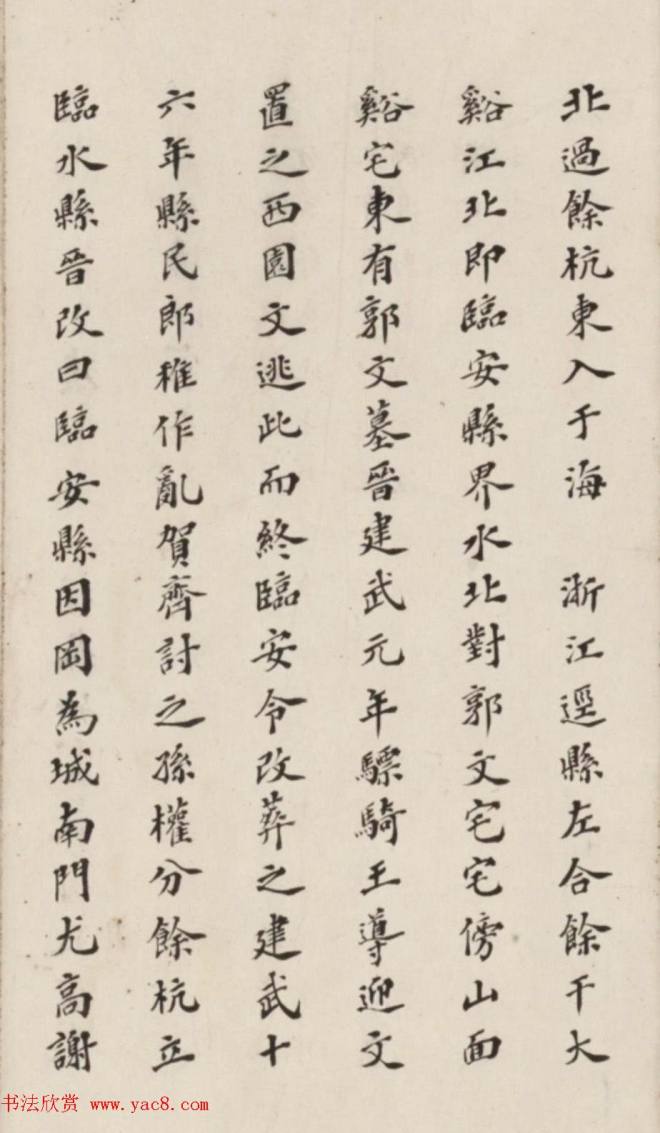 北過餘杭東入于海　浙江逕縣左合餘干大
谿江北即臨安縣界水北對郭文宅宅傍山面
谿宅東有郭文墓晉建武元年驃騎王導迎文
置之西園文逃此而終臨安令改葬之建武十
六年縣民郎稚作亂賀齊討之孫權分餘杭立
臨水縣晉改曰臨安縣因岡為城南門尤高謝
书法欣赏 www.yac8.com